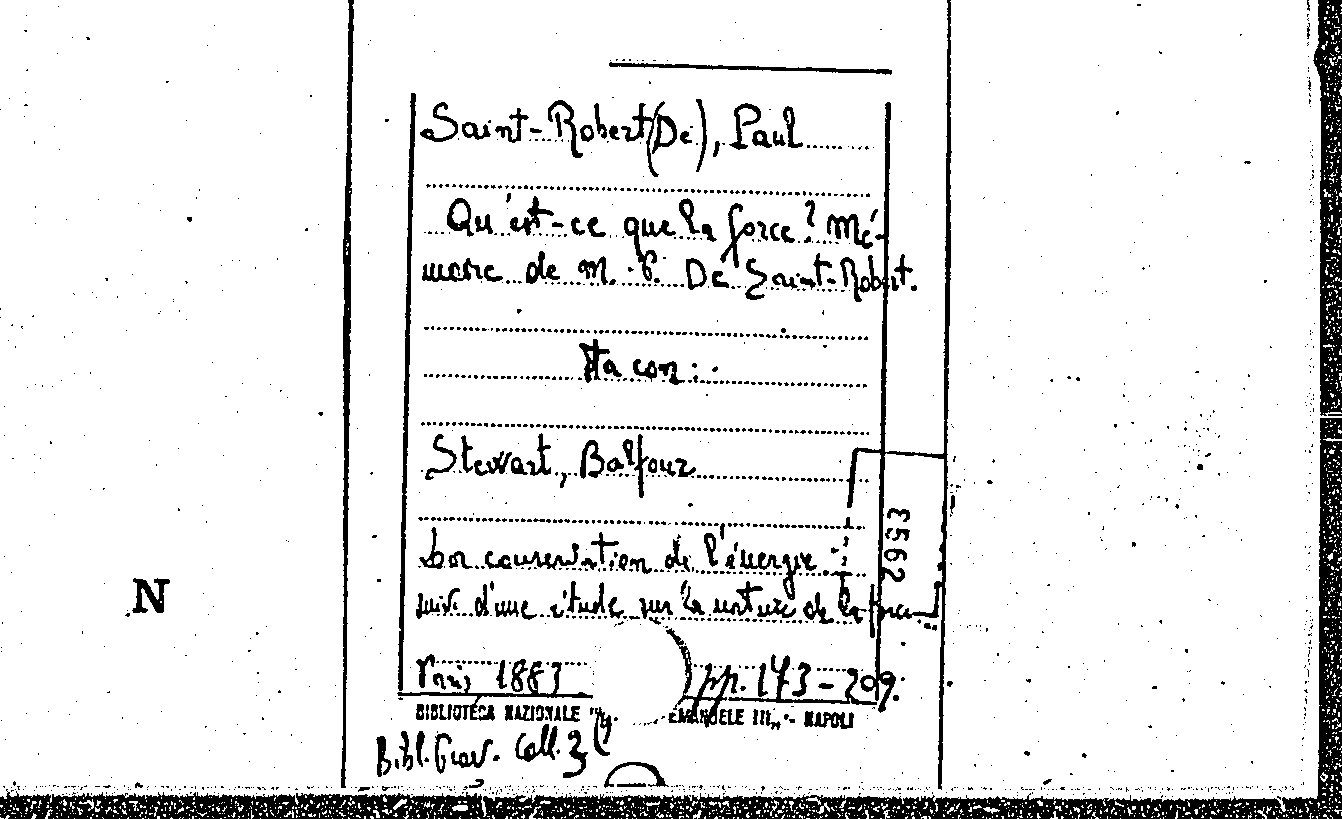 Saint-Robert (De), Paul
Qu'est-ce que la force? Mé-
moire de M. P. De Saint-Robert.
Sta con:
Stewart, Balfour
conservation de l'énergie
suivi d'une étude sur la nature de la force
Paris 1883 pp. 143-209.
BIBLIOTECA NAZIONALE EMANUELE III„ - NAPOLI
Bibl. Prov. Coll. 3
N